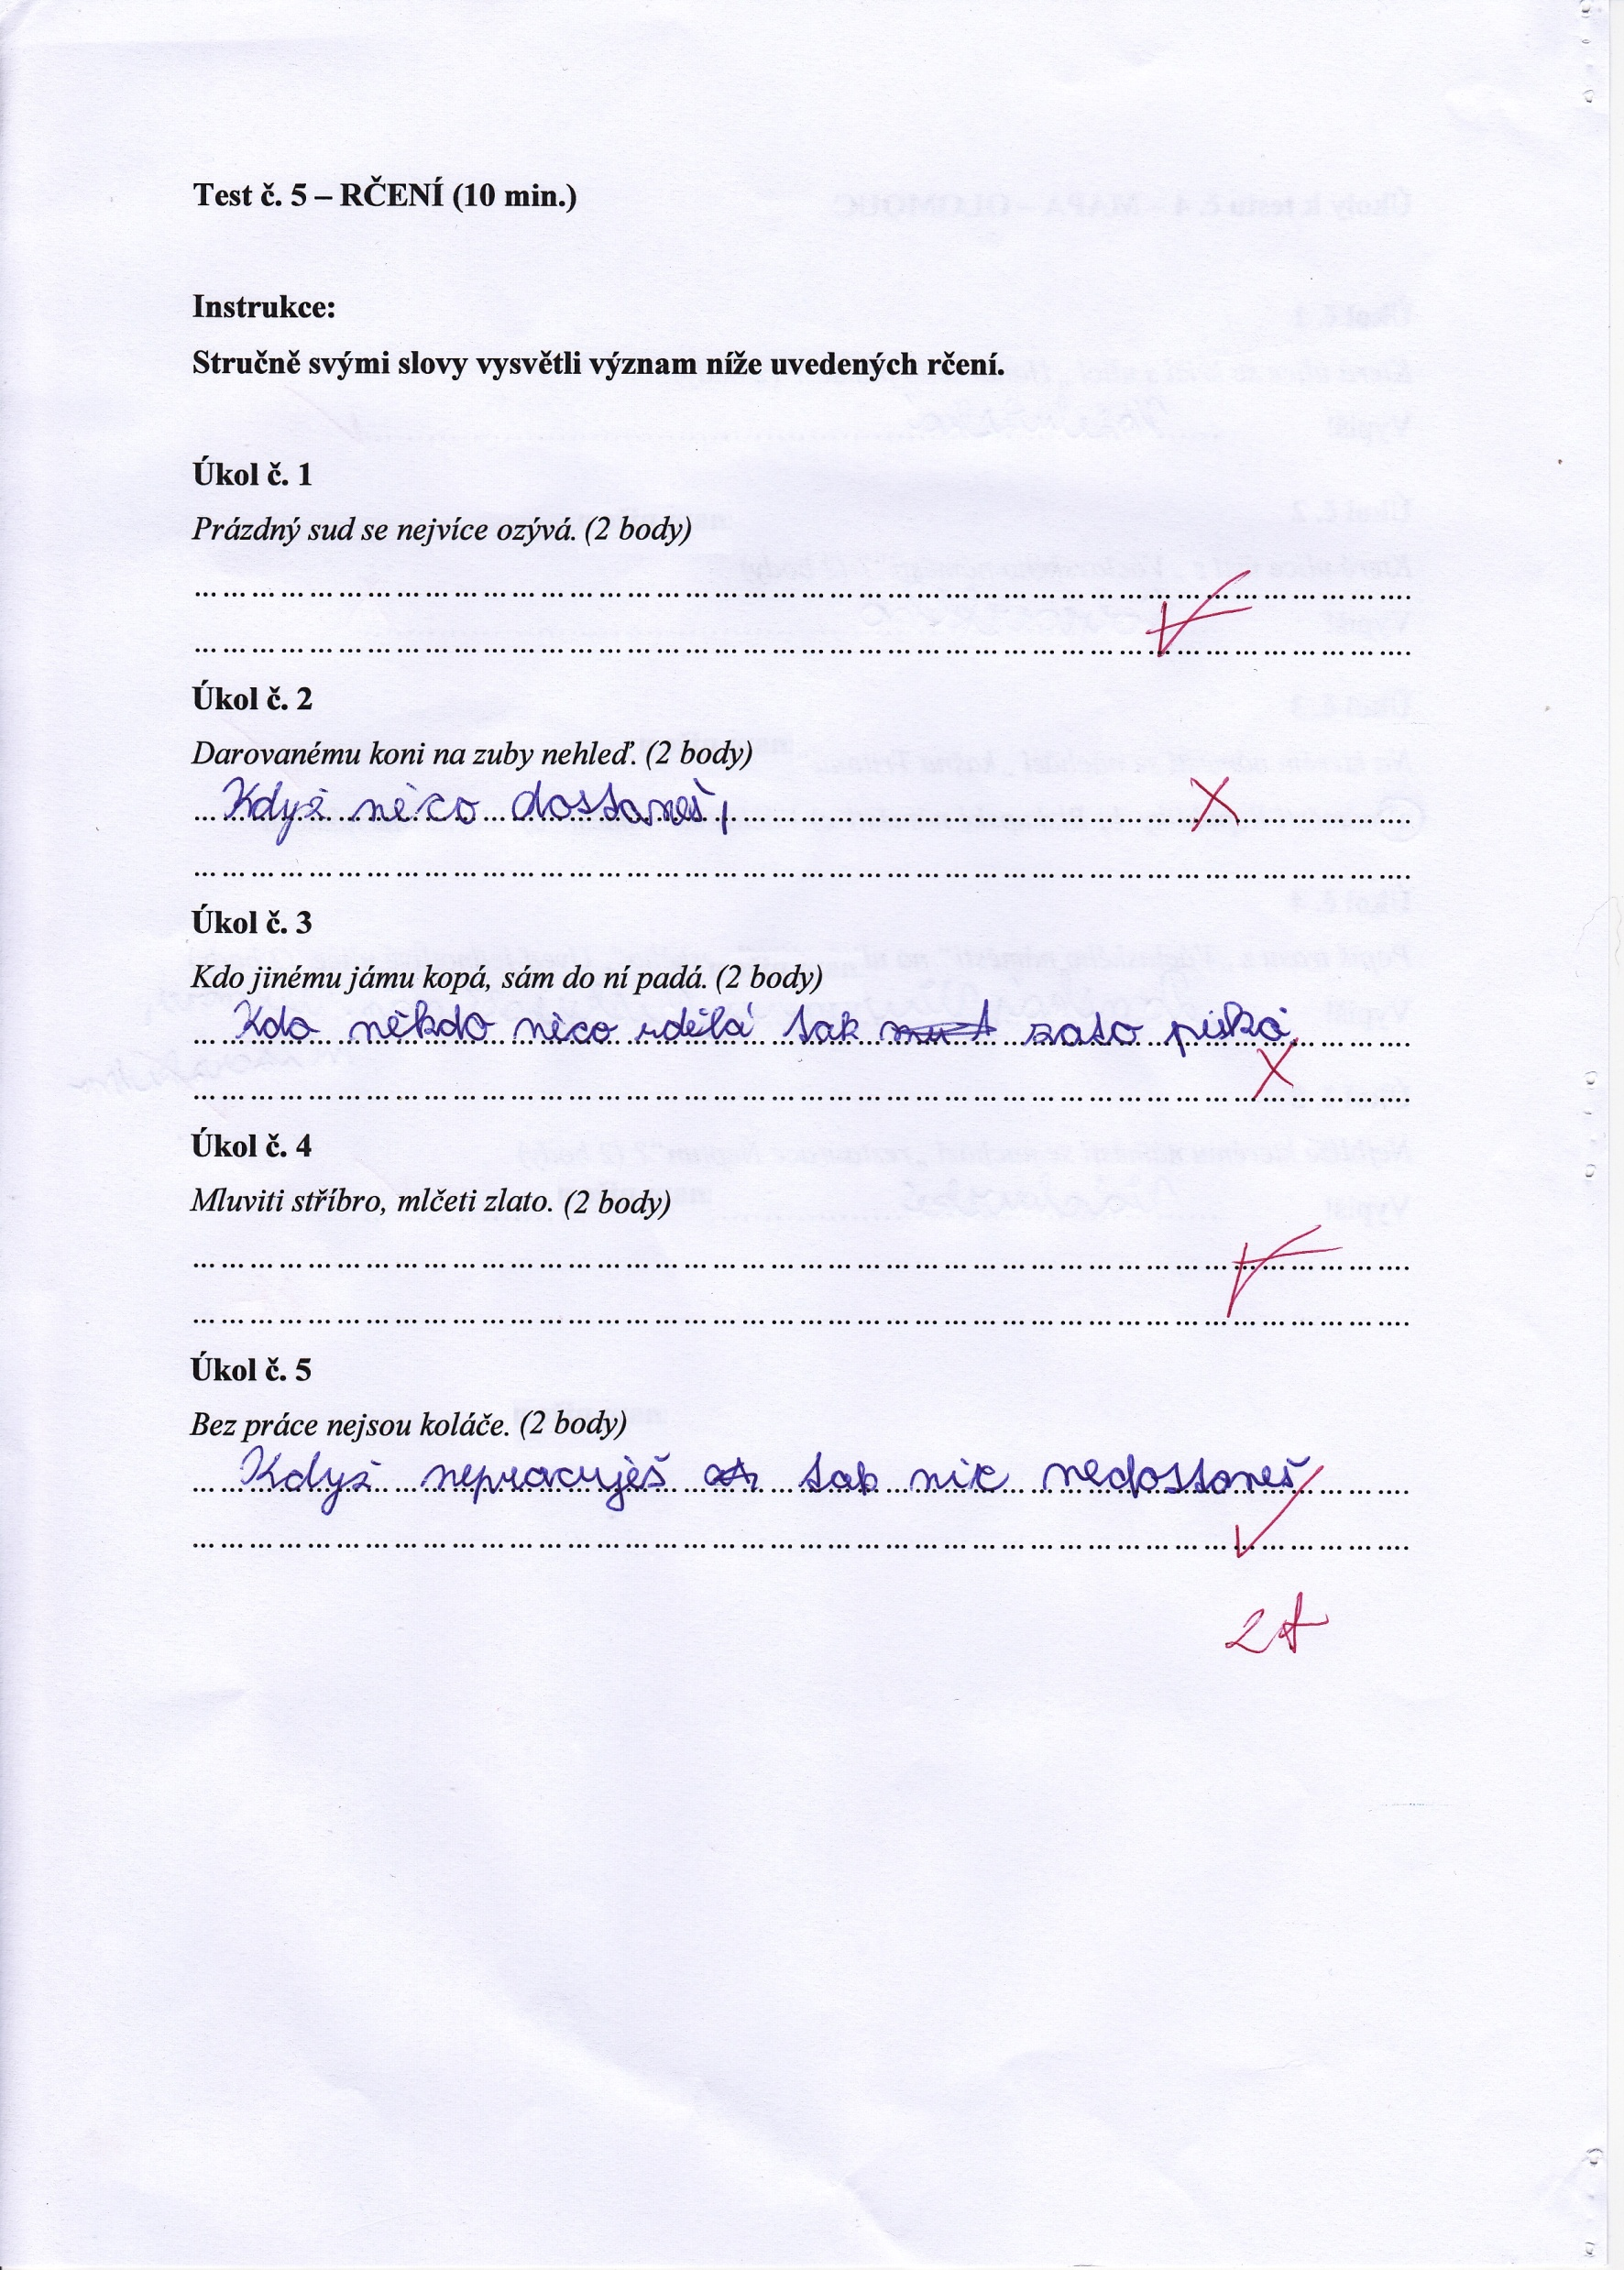 Test č. 5 – RČENÍ (10 min.)
Instrukce:
Stručně svými slovy vysvětli význam níže uvedených rčení.
Úkol č. 1
Prázdný sud se nejvíce ozývá. (2 body)
Úkol č. 2
Darovanému koni na zuby nehleď. (2 body)
Když něco dostaneš,
Úkol č. 3
Kdo jinému jámu kopá, sám do ní padá. (2 body)
Kdo někdo něco udělá tak zato piská
Úkol č. 4
Mluviti stříbro, mlčeti zlato. (2 body)
Úkol č. 5
Bez práce nejsou koláče. (2 body)
Když nepracuješ tak nic nedostaneš